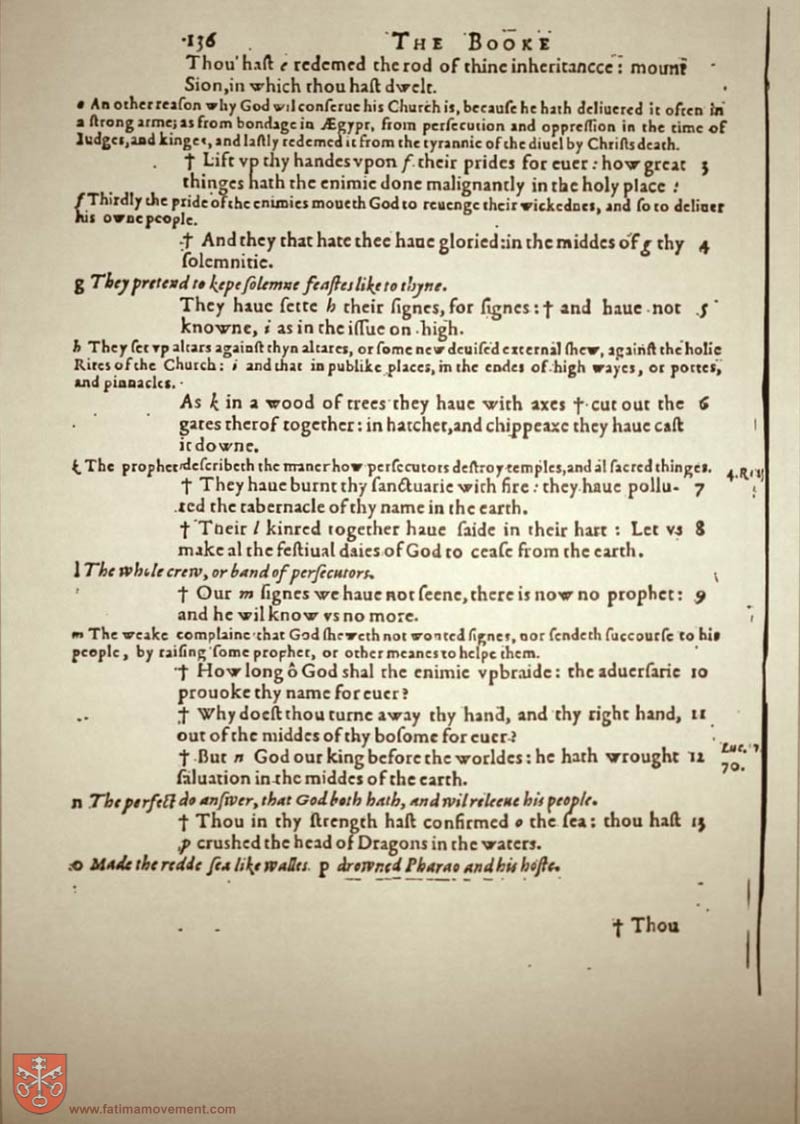 136 THE BOOKE
Thou haſt e redemed the rod of thine inheritancce: mount
Sion, in which thou haſt dwelt.
e An other reaſon why God wil conſerue his Church is, becauſe he hath deliuered it often in
a ſtrong arme; as from bondage in Ægypt, from perſecution and oppreſſion in the time of
Iudges, and kinges, and laſtly redemed it from the tyrannie of the diuel by Chriſts death.
† Lift vp thy handes vpon f their prides for euer: how great 3
thinges hath the enimie done malignantly in the holy place!
f Thirdly the pride of the enimies moueth God to reuenge their wickednes, and ſo to deliuer
his owne people.
† And they that hate thee haue gloried: in the middes of g thy 4
ſolemnitie.
g They pretend to kepe ſolemne feaſtes like to thyne.
They haue ſette h their ſignes, for ſignes: † and haue not 5
knowne, i as in the iſſue on high.
h They ſet vp altars againſt thyn altares, or ſome new deuiſed external ſhew, againſt the holie
Rites of the Church: i and that in publike places, in the endes of high wayes, or portes,
and pinnacles.
As k in a wood of trees they haue with axes † cut out the 6
gates therof together: in hatchet, and chippeaxe they haue caſt
it downe.
k The prophet deſcribeth the maner how perſecutors deſtroy temples, and al ſacred thinges.
4.
† They haue burnt thy ſanctuarie with fire: they haue pollu- 7
ted the tabernacle of thy name in the earth.
† Their l kinred together haue ſaide in their hart: Let vs 8
make al the feſtiual daies of God to ceaſe from the earth.
l The whole crew, or band of perſecutors.
† Our m ſignes we haue not ſeene, there is now no prophet: 9
and he wil know vs no more.
m The weake complaine that God ſheweth not wonted ſignes, nor ſendeth ſuccourſe to his
people, by raiſing ſome prophet, or other meanes to helpe them.
† How long ô God shal the enimie vpbraide: the aduerſarie 10
prouoke thy name for euer?
† Why doeſt thou turne away thy hand, and thy right hand, 11
out of the middes of thy boſome for euer?
† But n God our king before the worldes: he hath wrought 12
ſaluation in the middes of the earth.
Luc. 1.
70.
n The perfect do anſwer, that God both hath, and wil releeue his people.
† Thou in thy ſtrength haſt confirmed o the ſea: thou haſt 13
p crushed the head of Dragons in the waters.
o Made the redde ſea like walles. p drowned Pharao and his hoſte.
† Thou
www.fatimamovement.com